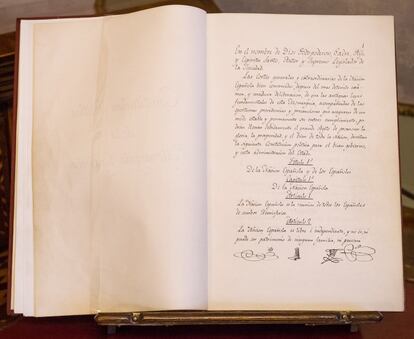 En el nombre de Dios Todopoderoso, Padre, Hijo,
y Espíritu Santo, Autor y Supremo Legislador de
la Sociedad.
Las Cortes generales y extraordinarias de la Nación
Española, bien convencidas, después del mas detenido exá-
men, y madura deliberacion, de que las antiguas leyes
fundamentales de esta Monarquía, acompañadas de las
oportunas providencias y precauciones, que aseguren de un
modo estable y permanente su entero cumplimiento, po-
drán llenar debidamente el grande objeto de promover la
gloria, la prosperidad, y el bien de toda la Nación, decretan
la siguiente Constitucion política para el buen gobierno,
y recta administracion del Estado.
Título 1º
De la Nación Española y de los Españoles
Capítulo 1º
De la Nación Española
Artículo 1
La Nación Española es la reunion de todos los Españoles
de ambos Hemisferios.
Artículo 2
La Nación Española es libre é independiente, y no es, ni
puede ser patrimonio de ninguna familia, ni persona